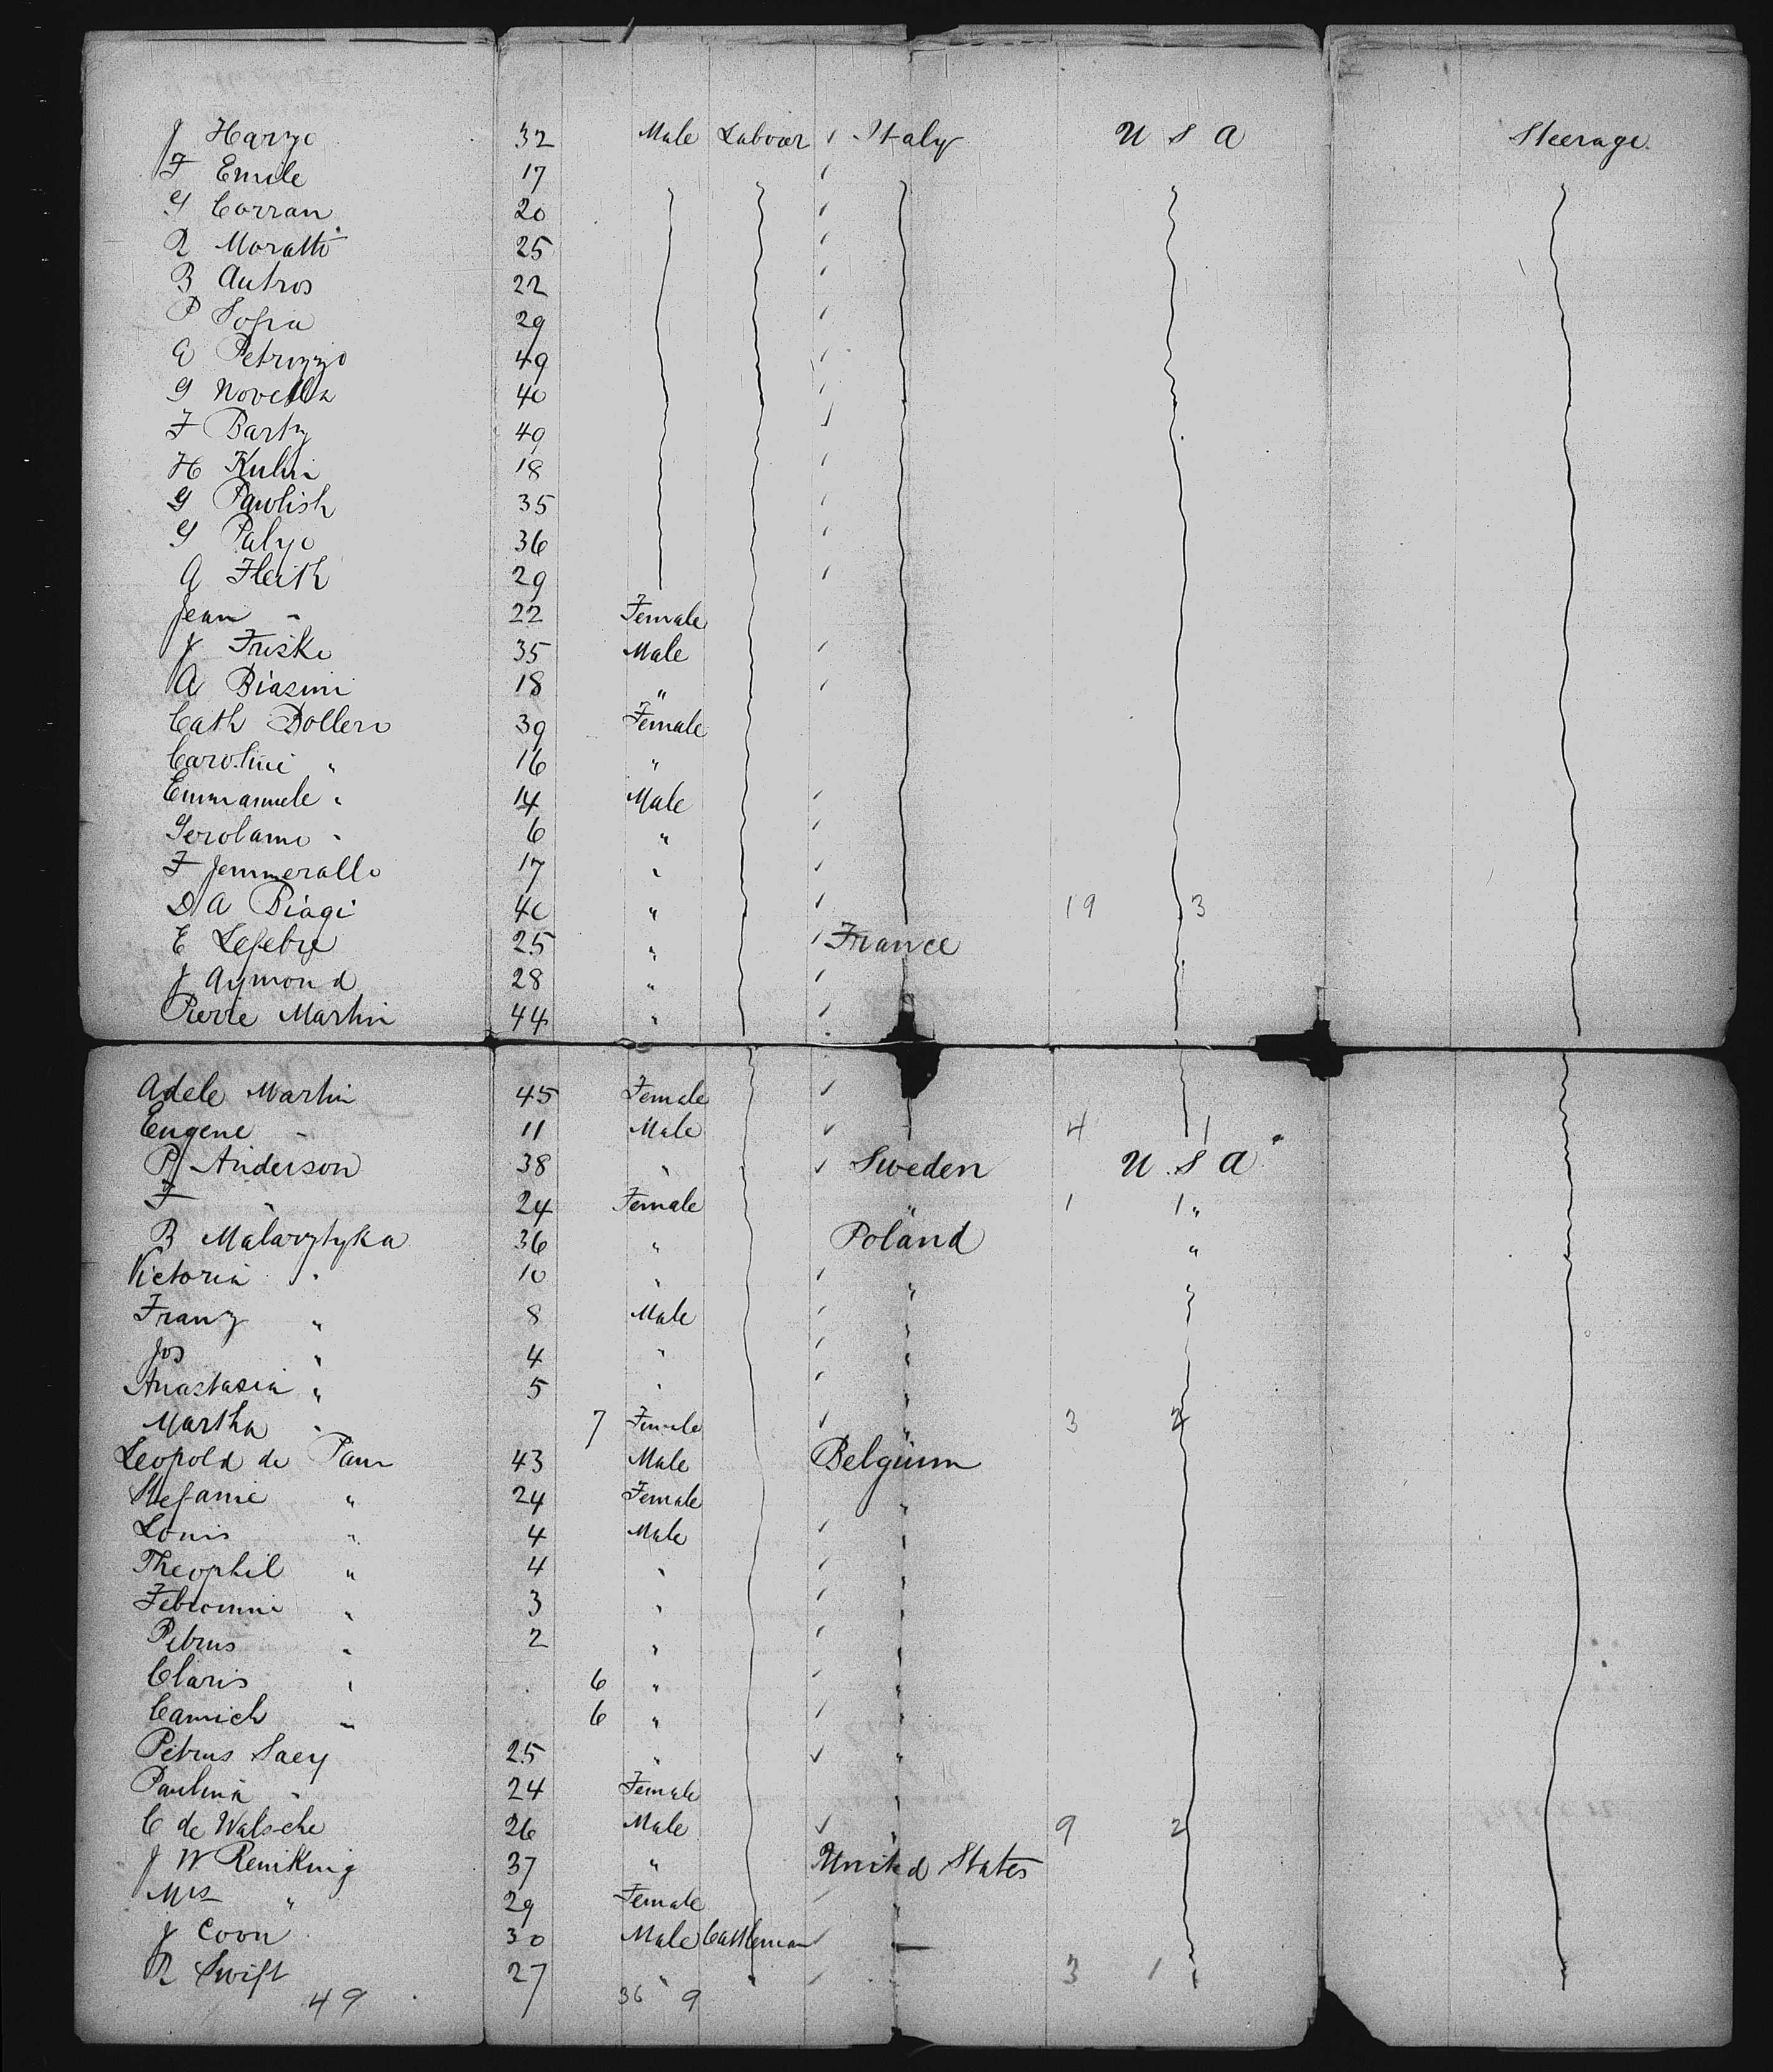 J Haryo 32 Male Labour ✓ Italy U S A Steerage.
F Emile 17
G Corran 20
R Moratti 25
B Autros 22
P Sofia 29
G Petrizzo 49
G Novella 40
F Barty 49
H Kuhn 18
G Pawlish 35
G Palyo 36
A Fleith 29
Jean " 22 Female
J Friske 35 Male
A Biasini 18 "
Cath Dollero 39 Female
Caroline " 16 "
Emmanuele " 14 Male
Gerolamo " 6 "
F Jemmerallo 17 "
D A Biagi 40 " 19 3
E Lefebre 25 " France
J Aymond 28 "
Pierre Martin 44 "
Adele Martin 45 Female
Eugene " 11 Male 4 1
P Anderson 38 " Sweden U.S A
F " 24 Female " 1 1 "
B Malavytyka 36 " Poland "
Victoria " 10 " " "
Franz " 8 Male "
Jos " 4 " "
Anastasia " 5 " "
Martha " 7 Female " 3 2
Leopold de Paur 43 Male Belgium
Stefanie " 24 Female "
Louis " 4 Male "
Theophil " 4 " "
Febronnie " 3 " "
Petrus " 2 " "
Claris " 6 " "
Camich " 6 " "
Petrus Saey 25 " "
Paulina " 24 Female "
C de Walsche 26 Male " 9 2
J W Reniking 37 " United States
Mrs " 29 Female "
J Coon 30 Male Cattleman
R Swift 27 " 3 1
49 36 9